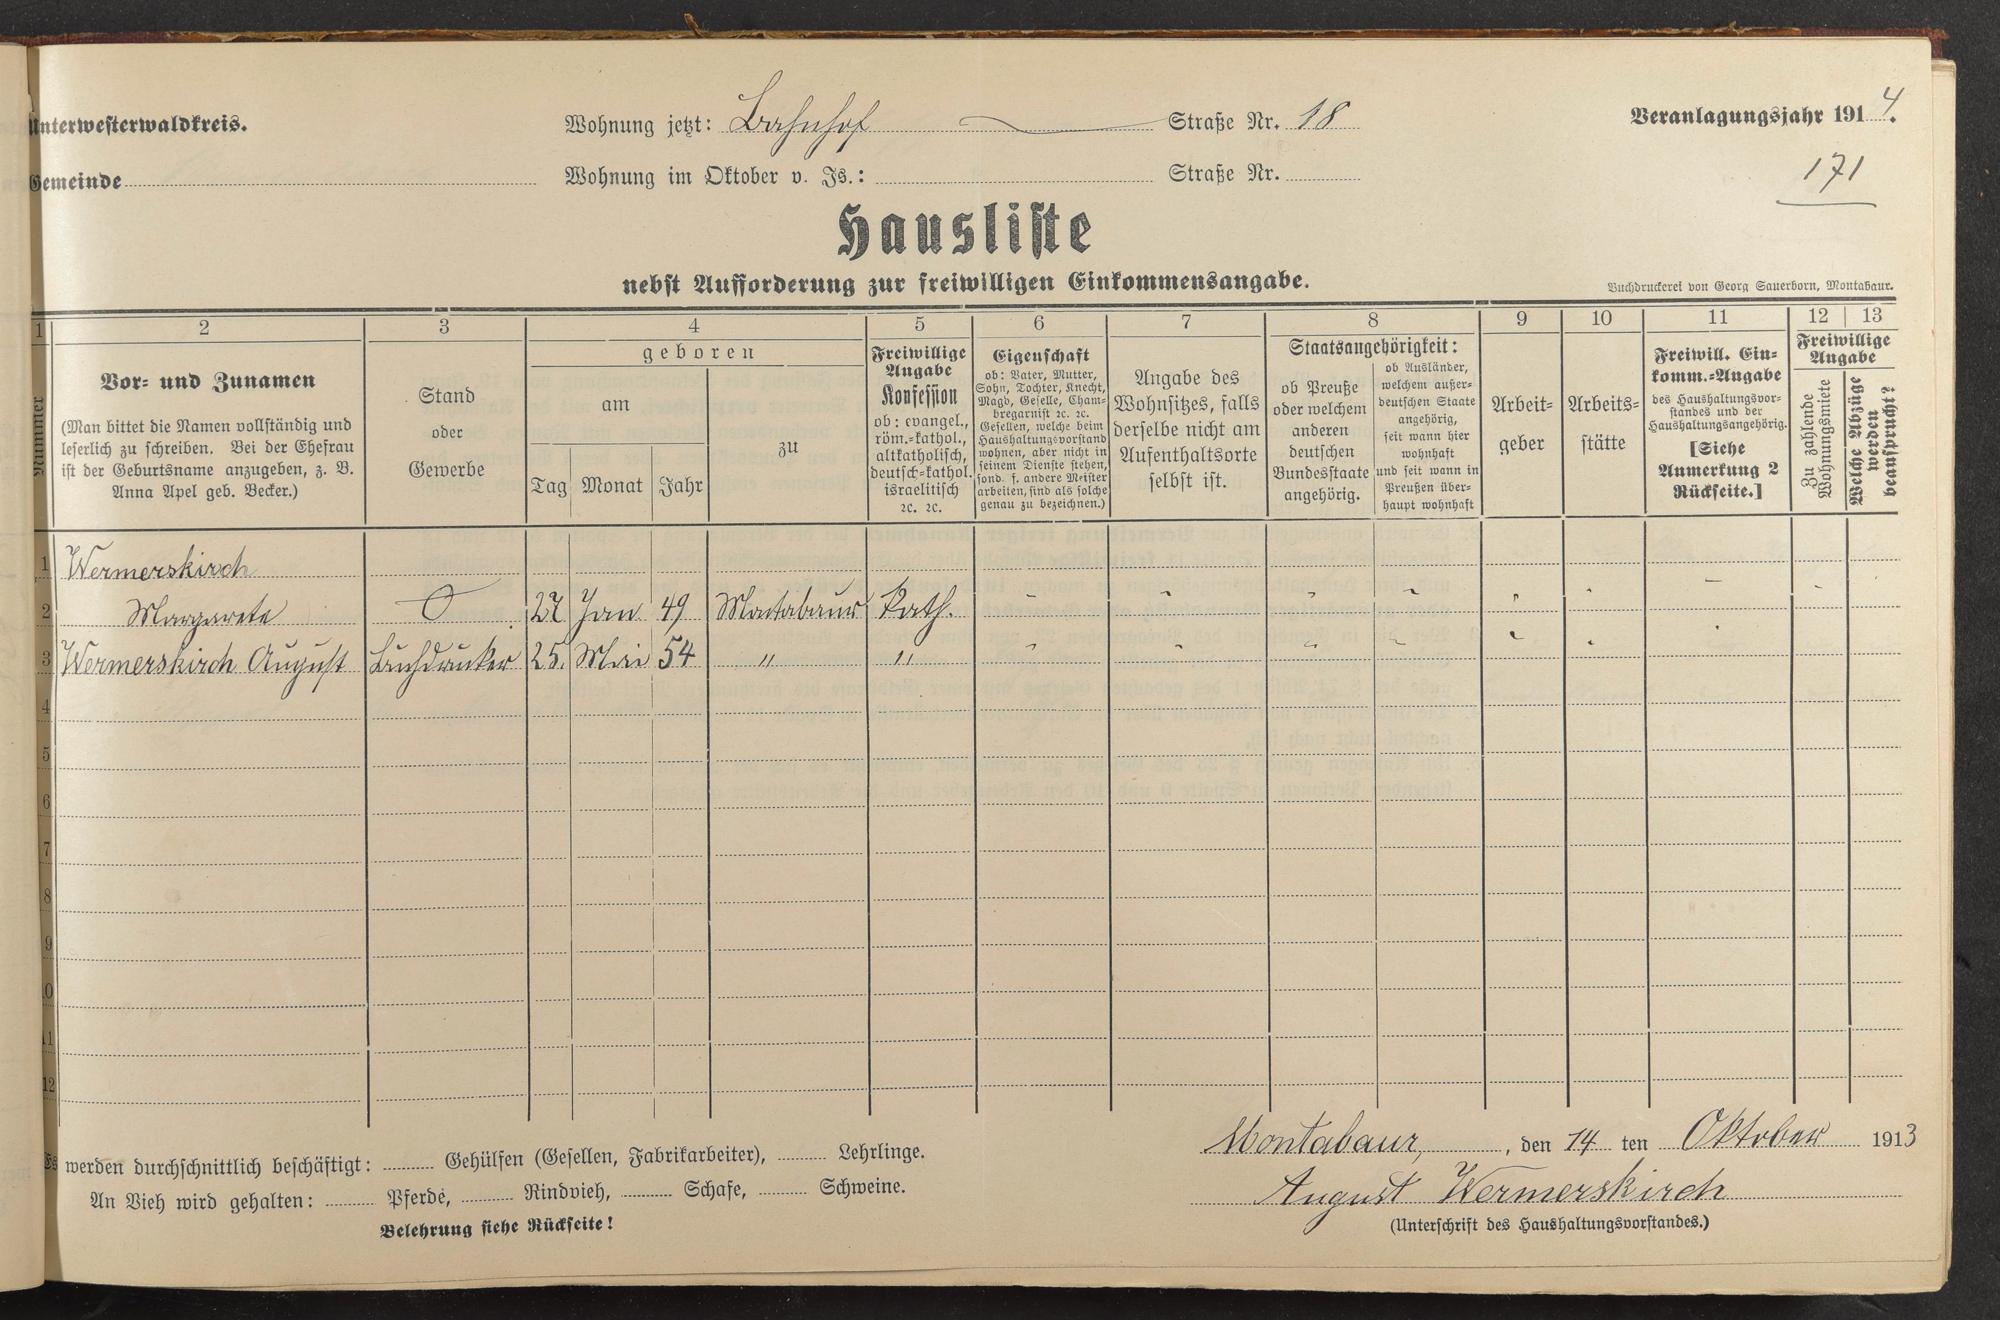 Unterwesterwaldkreis.
Wohnung jetzt: Bahnhof Straße Nr. 18
Veranlagungsjahr 1914.
Gemeinde
Wohnung im Oktober v. Js.: Straße Nr.
171
Hausliste
nebst Aufforderung zur freiwilligen Einkommensangabe.
Buchdruckerei von Georg Sauerborn, Montabaur.
1 2 3 4 5 6 7 8 9 10 11 12 13
Nummer
Vor- und Zunamen
(Man bittet die Namen vollständig und
leserlich zu schreiben. Bei der Ehefrau
ist der Geburtsname anzugeben, z. B.
Anna Apel geb. Becker.)
Stand
oder
Gewerbe
geboren
am
Tag Monat Jahr
zu
Freiwillige
Angabe
Konfession
ob: evangel.,
röm.-kathol.,
altkatholisch,
deutsch-kathol.
israelitisch
ꝛc. ꝛc.
Eigenschaft
ob: Vater, Mutter,
Sohn, Tochter, Knecht,
Magd, Geselle, Cham-
bregarnist ꝛc. ꝛc.
Gesellen, welche beim
Haushaltungsvorstand
wohnen, aber nicht in
seinem Dienste stehen,
sond. f. andere Meister
arbeiten, sind als solche
genau zu bezeichnen.)
Angabe des
Wohnsitzes, falls
derselbe nicht am
Aufenthaltsorte
selbst ist.
Staatsangehörigkeit:
ob Preuße
oder welchem
anderen
deutschen
Bundesstaate
angehörig.
ob Ausländer,
welchem außer-
deutschen Staate
angehörig,
seit wann hier
wohnhaft
und seit wann in
Preußen über-
haupt wohnhaft
Arbeit-
geber
Arbeits-
stätte
Freiwill. Ein-
komm.-Angabe
des Haushaltungsvor-
standes und der
Haushaltungsangehörig.
[Siehe
Anmerkung 2
Rückseite.]
Freiwillige
Angabe
Zu zahlende
Wohnungsmiete
Welche Abzüge
werden
beansprucht?
1 Wermerskirch
2 Margarete 27 Jan 49 Montabaur Kath.
3 Wermerskirch August Buchdrucker 25. Mai 54 " "
4
5
6
7
8
9
10
11
12
Es werden durchschnittlich beschäftigt: Gehülfen (Gesellen, Fabrikarbeiter), Lehrlinge.
An Vieh wird gehalten: Pferde, Rindvieh, Schafe, Schweine.
Belehrung siehe Rückseite!
Montabaur, , den 14 ten Oktober 1913
August Wermerskirch
(Unterschrift des Haushaltungsvorstandes.)